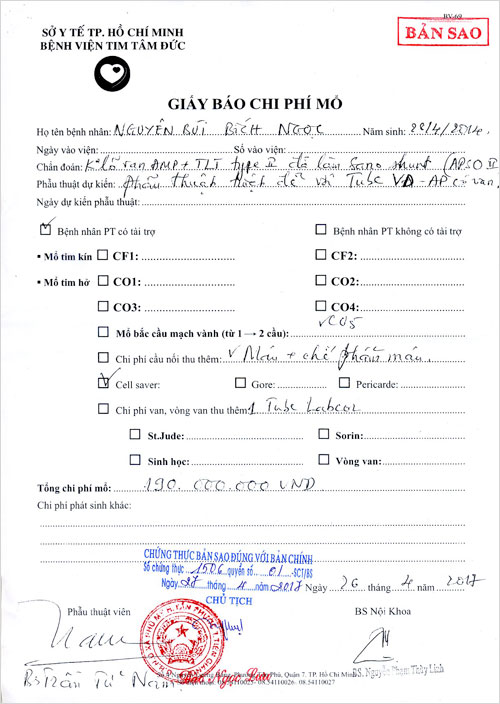 BV-60
BẢN SAO
SỞ Y TẾ TP. HỒ CHÍ MINH
BỆNH VIỆN TIM TÂM ĐỨC
GIẤY BÁO CHI PHÍ MỔ
Họ tên bệnh nhân: NGUYỄN BÙI BÍCH NGỌC Năm sinh: 22/4/2014.
Ngày vào viện: Số vào viện:
Chẩn đoán: K lỗ van ĐMP + TLT type II đã làm Sano shunt (APSO II
Phẫu thuật dự kiến: phẫu thuật triệt để với Tube VD-AP có van.
Ngày dự kiến phẫu thuật:
Bệnh nhân PT có tài trợ Bệnh nhân PT không có tài trợ
▪ Mổ tim kín CF1: CF2:
▪ Mổ tim hở CO1: CO2:
CO3: CO4:
CO5
Mổ bắc cầu mạch vành (từ 1 → 2 cầu):
Chi phí cầu nối thu thêm: Máu + chế phẩm máu.
Cell saver: Gore: Pericarde:
Chi phí van, vòng van thu thêm: 1 Tube Labcor
St.Jude: Sorin:
Sinh học: Vòng van:
Tổng chi phí mổ: 190.000.000 VNĐ
Chi phí phát sinh khác:
CHỨNG THỰC BẢN SAO ĐÚNG VỚI BẢN CHÍNH
Số chứng thực 1506 quyển số 01 -SCT/BS
Ngày 27 tháng 4 năm 2017
Ngày 26 tháng 4 năm 2017
CHỦ TỊCH
Phẫu thuật viên BS Nội Khoa
Bs Trần Tứ Nam
BS. Nguyễn Phạm Thùy Linh
Phú, Quận 7. TP. Hồ Chí Minh
08.54110025- 08.54110026- 08.54110027